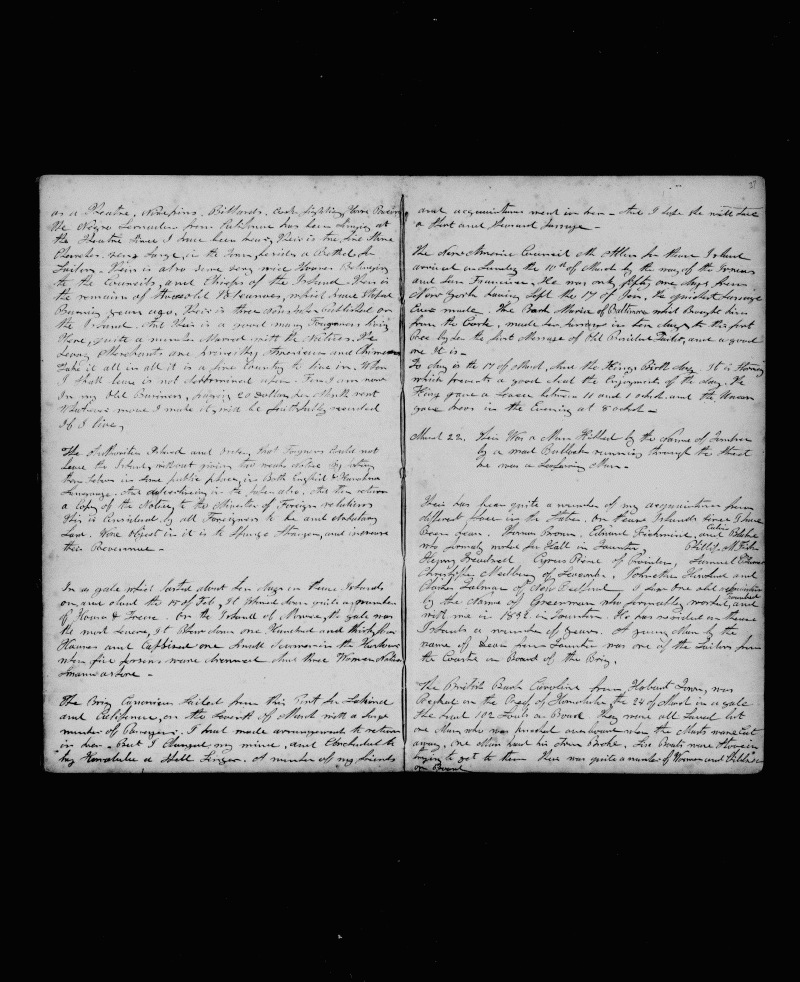 as a Theatre, Ninepins, Billiards, Cock fighting, Horse Racing
The Negro Serenaders from California has been playing at
the Theatre since I have been here, Their is two fine Stone
Churches, very large, in the Town, besides a Bethel for
Sailors. Their is also some very nice Houses Belonging
to the Councils, and Chiefs of the Island. Their is
the remains of two old Volcanoes, which have Stoped
Burning years ago. Their is three
the Island. And Their is a good many Foreigners living
Here, quite a number Married with the natives. The
Merchants are principley American and Chinese
Take it all in all it is a fine Country to live in. When
I shall leave is not determined upon. For I am now
In my Old Business, paying 20 dollars per Month rent
Whatever more I make it, will be faithfully recorded
If I live,
The Authorities Island and that Foreigners Should not
leave the Island, without giving two weeks notice by
in some public place, in Both English & Hawaiian
Language. And advertising in the paper also. And then return
a Copy of the Notice, to the Minister of Foreign relations
This is Considered by all Foreigners to be and arbitrary
Law. Their Object in it is to Strangers, and increase
their Revenue –
In a gale which lasted about ten days in these Islands
on and about the 15 of Feb, It Blowed down quite a number
of Houses & Trees. On the Island of the gale was
the most severe, It Blew down One Hundred and thirty four
Houses and Capsized one small Schooner in the Harbour
when five persons were drowned And three Women
–
The Brig sailed from this Port for
and California, on the seventh of March with a large
number of Passengers. I had made arrangement to return
in her – But I Changed my mind, and Concluded to
try Honolulu a Little Longer. A number of my friends
and acquaintances went in her – And I hope she will have
a Short and pleasant Passage –
The New American Council Mr Allen for these Island
arrived on Sunday the 10th of March by the way of the Isthmus
and San Francisco. He was only fifty one days from
New York having left the 17 of Jan, The quickest passage
Ever made. The Bark Maria of Baltimore which Brought him
from the Coast, made her passage in ten days to this port
by the first Message of Old President Taylor, and a good
one It is –
To day is the 17 of March, And the Kings Birth day. It is Stormy
which prevents a good deal the Enjoyments of the day. The
King gave a Levee between 11 and 1 oclock and the Queen
gave dross in the Evening at 8 oclock –
March 22. Their Was a Man Killed by the of Timber
by a mad Bullock running through the Street
he was a Man –
Their has been quite a number of my acquaintance from
different place in the States. On these Islands since I have
Been here. Hiram Brown, Edward Richmond, and
who formerly worked for Hall in Taunton, Phillip M. Fisher
Henry Treadwell Cyrus of Samuel
Christopher of Johnathan and
Charles of New Bedford I saw one old acquaintance
by the Name of Greenman who formerly worked, and boarded
with me in 1832 in Taunton. He has resided in these
Islands a number of years. A young Man by the
name of Dean from Taunton was one of the Sailors from
the Coast on Board of the Brig.
The British Bark Caroline from Hobart Town, was
Wrecked on the Reef of Honolulu the 24 of March in a gale
She had 102 Souls on Board they were all Saved but
one Man who was over board when the Masts were Cut
away, one Man had his Arm Broke. Five Boats were
trying to get to them. There was quite a number of Women and Children
on Board